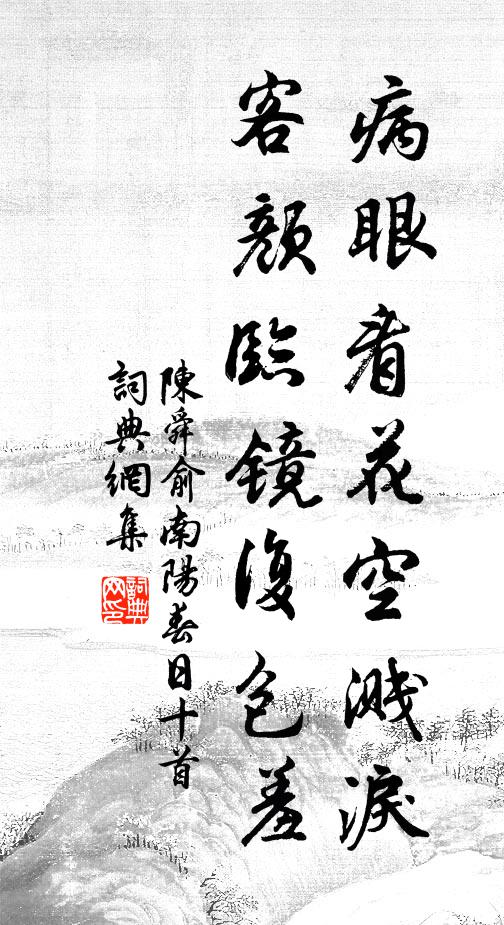 病眼看花空溅淚
客顏臨镜復包羞
陳舜俞南陽春日十首
詞典網集
詞典网印